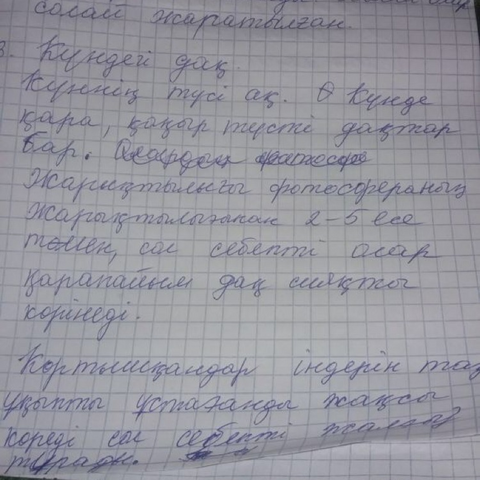 солай жаратылған.
3. Күндегі дақ.
Күннің түсі ақ. Ө Күнде
қара, қоңыр түсті дақтар
бар. Олардың фотосфе
Жарықтылығы фотосфераның
жарықтылығынан 2-5 есе
төмен, сол себепті олар
қарапайым дақ сияқты
көрінеді.
Көртышқандар індерін таз
ұқыпты ұстағанды жақсы
көреді сол себепті жалғыз
тұрады.